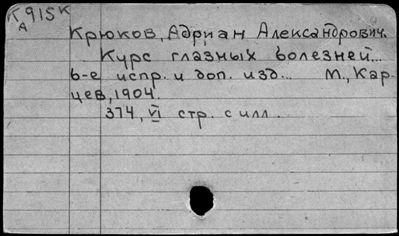 К915К
А
Крюков, Адриан Александрович.
Курс глазных болезней...
6-е испр. и доп. изд... М., Кар-
цев, 1904.
374, VI стр. с илл..